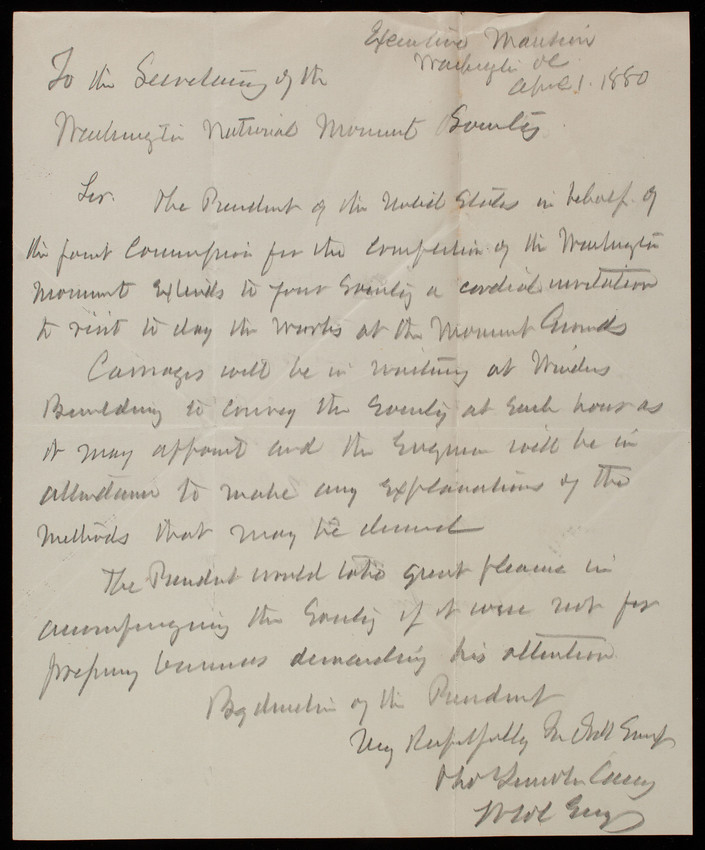 Executive Mansion
Washington DC
April 1. 1880
To the Secretary of the
Washington National Monument Society
Sir. The President of the United States in behalf of
the joint Commission for the Completion of the Washington
Monument Extends to your Society a cordial invitation
to visit to day the works at the Monument Grounds
Carriages will be in waiting at Winders
Building to convey the Society at such hour as
it may appoint and the Engineer will be in
attendance to make any Explanations of the
methods that may be desired
The President would take great pleasure in
accompanying the Society if it were not for
pressing business demanding his attention
By direction of the President
Very Respectfully
Thos Lincoln Casey
Lt Col Engrs